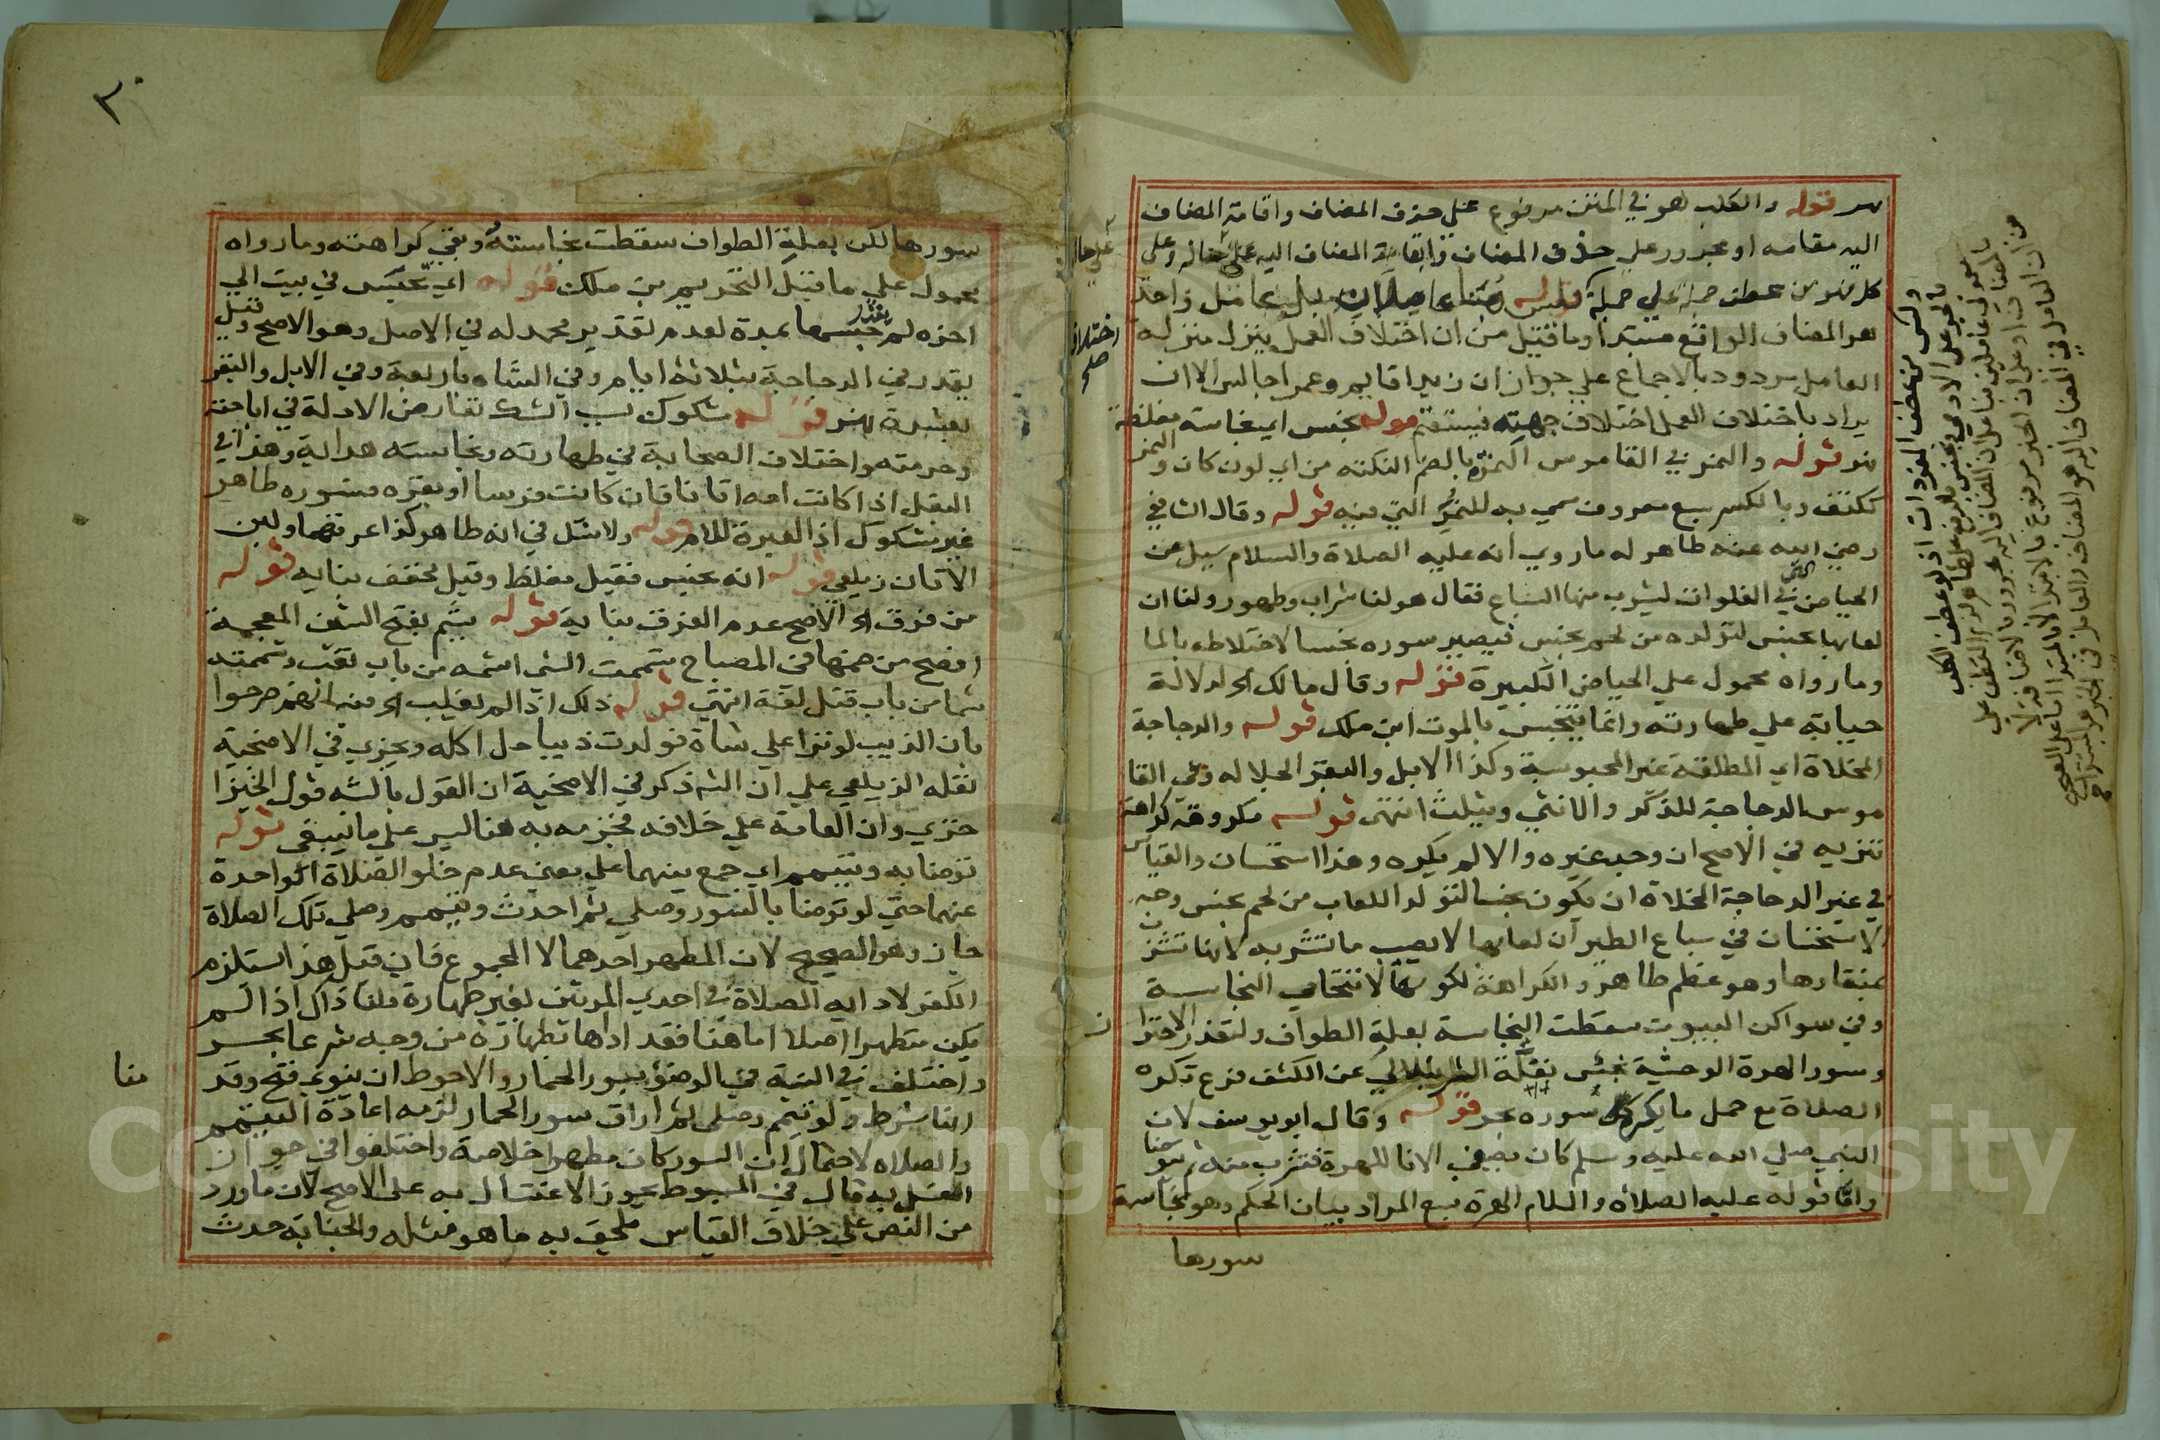 نهر قوله والكلب هو في المتن مرفوع على حذف المضاف واقامة المضاف
اليه مقامه او مجرور علي حذف المضاف وابقاء المضاف اليه على حاله وعلى
كل فهو من عطف جملة علي جملة قوله فليس هنا عاملان بل عامل واحد
هو المضاف الواقع مبتدا وما قيل من ان اختلاف العمل ينزل منزلة
العامل مردود بالاجماع علي جواز ان زيدا قايم وعمرا جالس الا ان
يراد باختلاف العمل اختلاف جهته فيستقيم قوله نجس اي نجاسة مغلظة
نهر قوله والنمر في القاموس النمرة بالضم النكتة من اي لون كان والنمر
ككتف وبالكسر سبع معروف سمي به للنمر التي فيه قوله وقال الشافعي
رضي الله عنه طاهر له ما روي انه عليه الصلاة والسلام سيل عن
الحياض التي في الفلوات يشرب منها السباع فقال هو لنا شراب وطهور ولنا ان
لعابها نجس لتولده من لحم نجس فيصير سوره نجسا لاختلاطه بالما
وما رواه محمول علي الحياض الكبيرة قوله وقال مالك اي لدلالة
حياته علي طهارته وانما ينجس بالموت ابن ملك قوله والدجاجة
المخلاة اي المطلقة غير المحبوسة وكذا الابل والبقر الجلاله وفي القا
موس الدجاجة للذكر والانثي ويثلث انتهى قوله مكروهة كراهة
تنزيه في الاصح ان وجد غيره والا لم يكره وهذا استحسان والقياس
في غير الدجاجة المخلاة ان يكون نجسا لتولد اللعاب من لحم نجس وجه
الاستحسان في سباع الطير ان لعابها لا يصيب ما تشربه لانها تشرب
بمنقارها وهو عظم طاهر والكراهة لكونها لا تتحامي النجاسة
وفي سواكن البيوت سقطت النجاسة بعلة الطواف ولتعذر الاحترا
ز
وسور الهرة الوحشية نجس نقله الشرنبلالي عن الكشف فرع تكره
الصلاة مع حمل ما يكره سوره بحر قوله وقال ابو يوسف لان
النبي صلي الله عليه وسلم كان يصغي الانا للهرة فتشرب منه ثم يتوضا
واما قوله عليه الصلاة والسلام الهرة سبع المراد بيان الحكم وهو نجاسة
سورها
علي حال
اختلاف
صح
وليس من عطف المفردات اذ لو عطف الكلب
٣٠
سورها لكن بعلة الطواف سقطت نجاسته وبقي كراهته وما رواه
محمول علي ما قبل التحريم بن ملك قوله اي تحبس في بيت الي
اخره لم يقدر حبسها بمدة لعدم تقدير محمد له في الاصل وهو الاصح وقيل
يقدر في الدجاجة بثلاثة ايام وفي الشاه باربعة وفي الابل والبقر
بعشرة نهر قوله مشكوك سبب الشك تعارض الادلة في اباحته
وحرمته واختلاف الصحابة في طهارته ونجاسته هداية وهذا في
البغل اذا كانت امه اتانا فان كانت فرسا او بقره فسوره طاهر
غير مشكوك اذ العبرة للام قوله ولا شك في انه طاهر وكذا عرقهما ولبن
الاتان زيلعي قوله انه نجس فقيل مغلظ وقيل مخفف بنايه قوله
من فرق اي الاصح عدم الفرق بناية قوله يشم بفتح الشين المعجمة
افصح من ضمها في المصباح شممت الشى اشمه من باب تعب وشممته
شما من باب قتل لغة انتهي قوله ذلك اذا لم يغلب اي منه انهم صرحوا
بان الذيب لو نزا علي شاة فولدت ذيبا حل اكله ويجزي في الاضحية
نقله الزيلعي علي ان الشـ ذكر في الاضحية ان القول بالشه قول الخيزا
خزي وان العامة علي خلافه فجزمه به هنا ليس علي ما ينبغي قوله
توضا به وتيمم اي جمع بينهما علي معني عدم خلو الصلاة الواحدة
عنهما حتي لو توضا بالسور وصلي ثم احدث وتيمم وصلي تلك الصلاة
جاز وهو الصحيح لان المطهر احدهما لا المجموع فان قيل هذا استلزم
الكفر لادايه الصلاة في احدي المرتين بغير طهارة قلنا ذاك اذا لم
يكن متطهرا اصلا اما هنا فقد اداها بطهارة من وجه شرعا بحر
واختلف في النية في الوضؤ بسور الحمار والاحوط ان ينوي فتح وقد
منا
انها شرط ولو تيمم وصلى ثم اراق سور الحمار لزمه اعادة التيمم
والصلاه لاحتمال ان السور كان مطهرا خلاصة واختلفوا في جواز
الغسل به قال في المبسوط يجوز الاغتسال به على الاصح لان ما ورد
من النص علي خلاف القياس ملحق به ما هو مثله والجنابة حدث